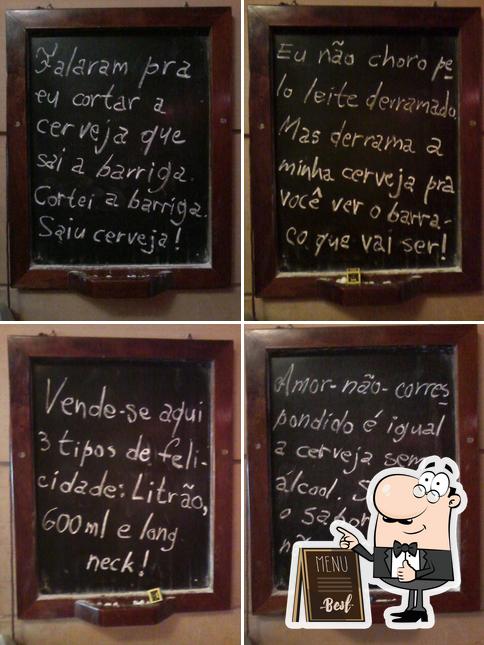 Falaram pra
eu cortar a
cerveja que
sai a barriga.
Cortei a barriga.
Saiu cerveja!
Eu não choro pe
lo leite derramado.
Mas derrama a
minha cerveja pra
você ver o barra-
co que vai ser!
Vende-se aqui
3 tipos de feli-
cidade: Litrão,
600ml e long
neck!
Amor-não-corres
pondido é igual
a cerveja sem
álcool.
o sabor
MENU
Best